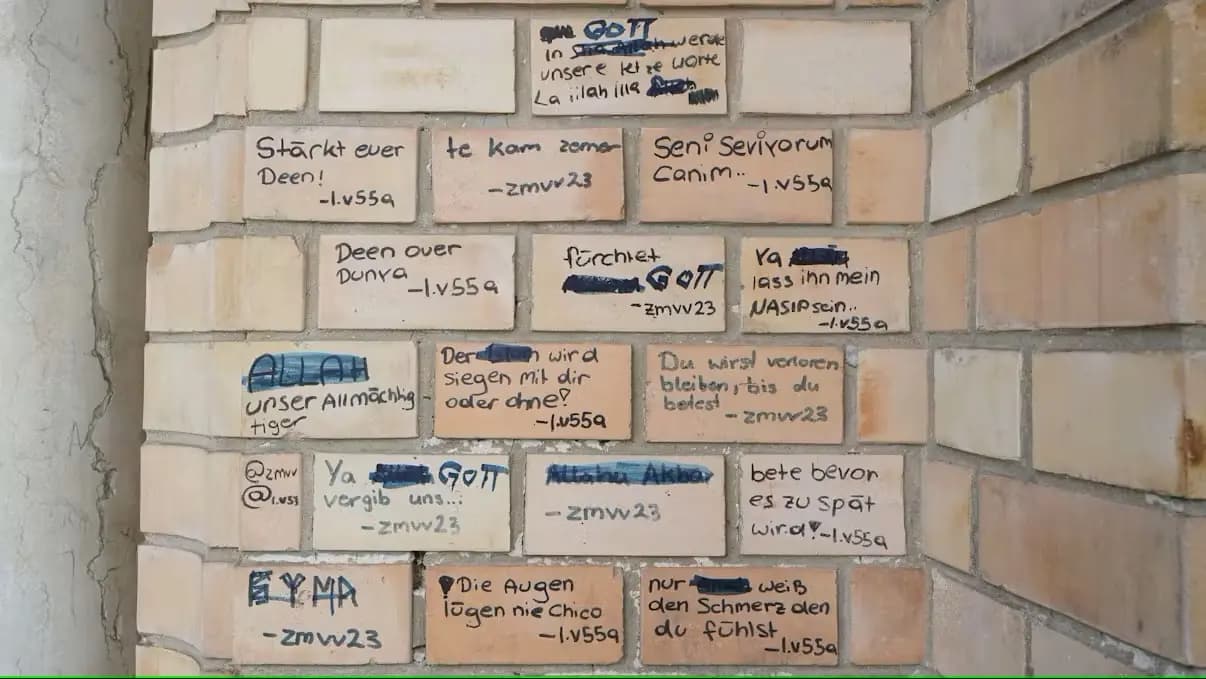 GOTT
in werde
unsere letze worte
La iilah illa
Stärkt euer
Deen!
-l.v55a
te kam zemer
-zmvv23
Seni Seviyorum
Canim..
-l.v55a
Deen over
Dunya
-l.v55a
fürchtet
GOTT
-zmvv23
Ya
lass ihn mein
NASIP sein..
-l.v55a
ALLAH
unser Allmächtig-
tiger
Der wird
siegen mit dir
oder ohne!
-l.v55a
Du wirst verloren
bleiben, bis du
betest
-zmvv23
@zmvv
@l.v55
Ya GOTT
vergib uns...
-zmvv23
Allahu Akbar
-zmvv23
bete bevor
es zu spät
wird!
-l.v55a
EYMA
-zmvv23
!Die Augen
lügen nie Chico
-l.v55a
nur weiß
den Schmerz den
du fühlst
-l.v55a